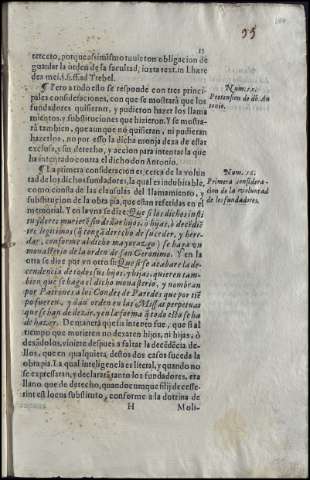 95
15
tercero, porque assi mismo tuuieron obligacion de
guardar la orden de su facultad, iuxta text. in l. hære
des mei, §. ff. ad Trebel.
Pero a todo ello se responde con tres princi-
pales consideraciones, con que se mostrarà que los
fundadores quisieron, y pudieron hazer los llama
mientos, y substituciones que hizieron. Y se mostra
rà tambien, que aunque no quisieran, ni pudieran
hazerlos, no por esso la dicha monja dexa de estar
exclusa, y sin derecho, y accion para intentar la que
ha intentado contra el dicho don Antonio.
La primera consideracion es, cerca de la volun
tad de los dichos fundadores, la qual es indubitable,
como consta de las clausulas del llamamiento, y
substitucion de la obra pia, que estan referidas en el
memorial. Y en la vna se dize: Que si los dichos insti
tuydores muriessen sin dexar hijos, ò hijas, ò decēdiē
tes legitimos (q̃ tengā derecho de suceder, y here-
dar, conforme al dicho mayorazgo) se haga vn
monasterio de la orden de san Geronimo. Y en la
otra se dize por en esto: Que si se acabare la de-
cendencia de todos sus hijos, y hijas, quieren tam-
bien que se haga el dicho monasterio, y nombran
por Patrones a los Condes de Paredes que por tiē
po fueren, y dan orden en las Missas perpetuas
que se han de dezir, y en la forma q̃ todo ello se ha
de hazer. De manera que su intento fue, que si al
tiempo que muriessen no dexaren hijos, ni hijas, ò
dexādolos, viniere despues a faltar la decēdēcia de-
llos, que en qualquiera destos dos casos suceda la
obra pia. La qual inteligencia es literal, y quando no
se expressaran, y declararā tanto los fundadores, era
llano que de derecho, quandocumque filij decesse-
rint est locus substituto, conforme a la dotrina de
H
Moli-
Num. 15.
Pretension de dō An
tonio.
Num. 16.
Primera considera-
cion de la voluntad
de los fundadores.